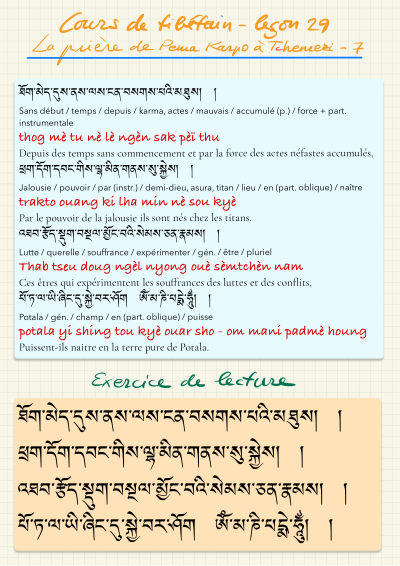 Cours de tibétain - leçon 29
La prière de Pema Karpo à Tchenrezi - 7
ཐོག་མེད་དུས་ནས་ལས་ངན་བསགས་པའི་མཐུས། །
Sans début / temps / depuis / karma, actes / mauvais / accumulé (p.) / force + part.
instrumentale
thog mè tu nè lè ngèn sak pèï thu
Depuis des temps sans commencement et par la force des actes néfastes accumulés,
ཕྲག་དོག་དབང་གིས་ལྷ་མིན་གནས་སུ་སྐྱེས། །
Jalousie / pouvoir / par (instr.) / demi-dieu, asura, titan / lieu / en (part. oblique) / naître
trakto ouang ki lha min nè sou kyè
Par le pouvoir de la jalousie ils sont nés chez les titans.
འཐབ་རྩོད་སྡུག་བསྔལ་མྱོང་བའི་སེམས་ཅན་རྣམས། །
Lutte / querelle / souffrance / expérimenter / gén. / être / pluriel
Thab tseu doug ngèl nyong ouè sèmtchèn nam
Ces êtres qui expérimentent les souffrances des luttes et des conflits,
པོ་ཏ་ལ་ཡི་ཞིང་དུ་སྐྱེ་བར་ཤོག ཨོཾ་མ་ཎི་པདྨེ་ཧཱུྃ། །
Potala / gén. / champ / en (part. oblique) / puisse
potala yi shing tou kyè ouar sho - om mani padmè houng
Puissent-ils naitre en la terre pure de Potala.
Exercice de lecture
ཐོག་མེད་དུས་ནས་ལས་ངན་བསགས་པའི་མཐུས། །
ཕྲག་དོག་དབང་གིས་ལྷ་མིན་གནས་སུ་སྐྱེས། །
འཐབ་རྩོད་སྡུག་བསྔལ་མྱོང་བའི་སེམས་ཅན་རྣམས། །
པོ་ཏ་ལ་ཡི་ཞིང་དུ་སྐྱེ་བར་ཤོག ཨོཾ་མ་ཎི་པདྨེ་ཧཱུྃ། །